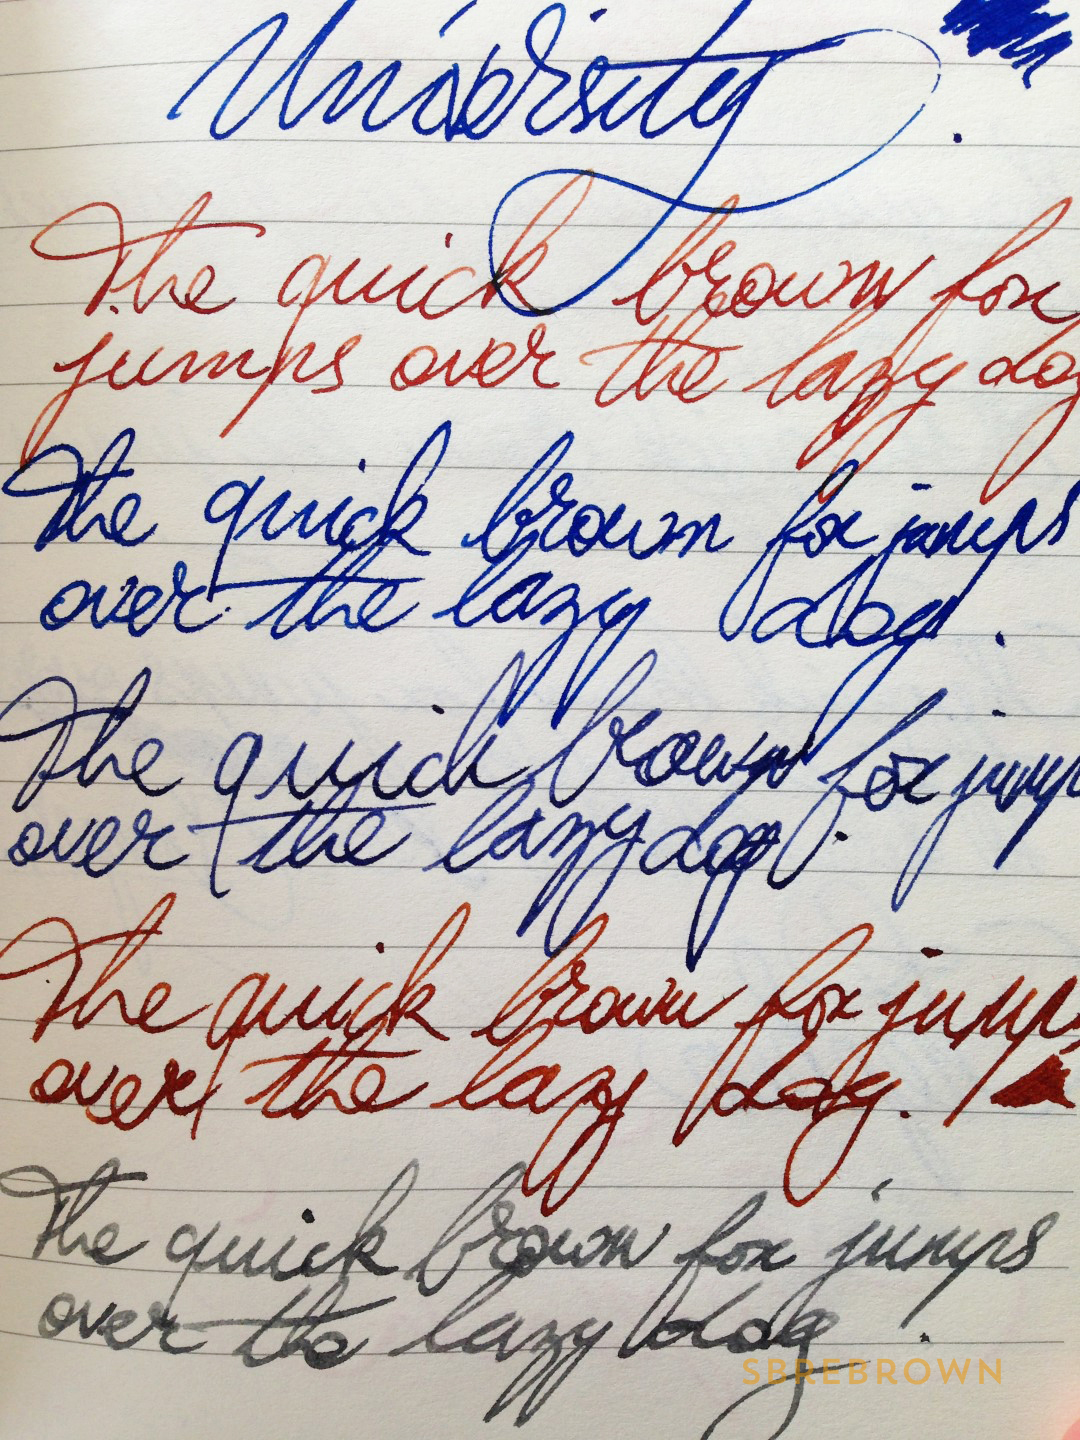 University.
The quick brown fox
jumps over the lazy dog
The quick brown fox jumps
over the lazy dog.
The quick brown fox jump
over the lazy dog.
The quick brown fox jumps
over the lazy dog.
The quick brown fox jumps
over the lazy dog.
SBREBROWN